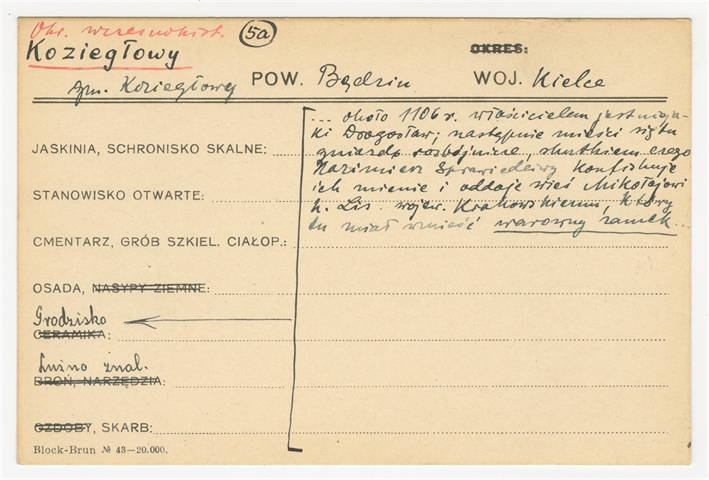 Okr. wczesnohist.
5a
Koziegłowy
OKRES:
gm. Koziegłowy POW. Będzin WOJ. Kielce
... około 1106 r. właścicielem jest nieja-
ki Drogosław; następnie mieści się tu
gniazdo rozbójnicze, skutkiem czego
Kazimierz Sprawiedliwy konfiskuje
ich mienie i oddaje wieś Mikołajowi
h. Lis. wojew. Krakowskiemu, który
tu miał wznieść warowny zamek...
JASKINIA, SCHRONISKO SKALNE:
STANOWISKO OTWARTE:
CMENTARZ, GRÓB SZKIEL. CIAŁOP.:
OSADA, NASYPY ZIEMNE:
Grodzisko
CERAMIKA:
Luźno znal.
BROŃ, NARZĘDZIA:
OZDOBY, SKARB:
Block-Brun № 43—20.000.